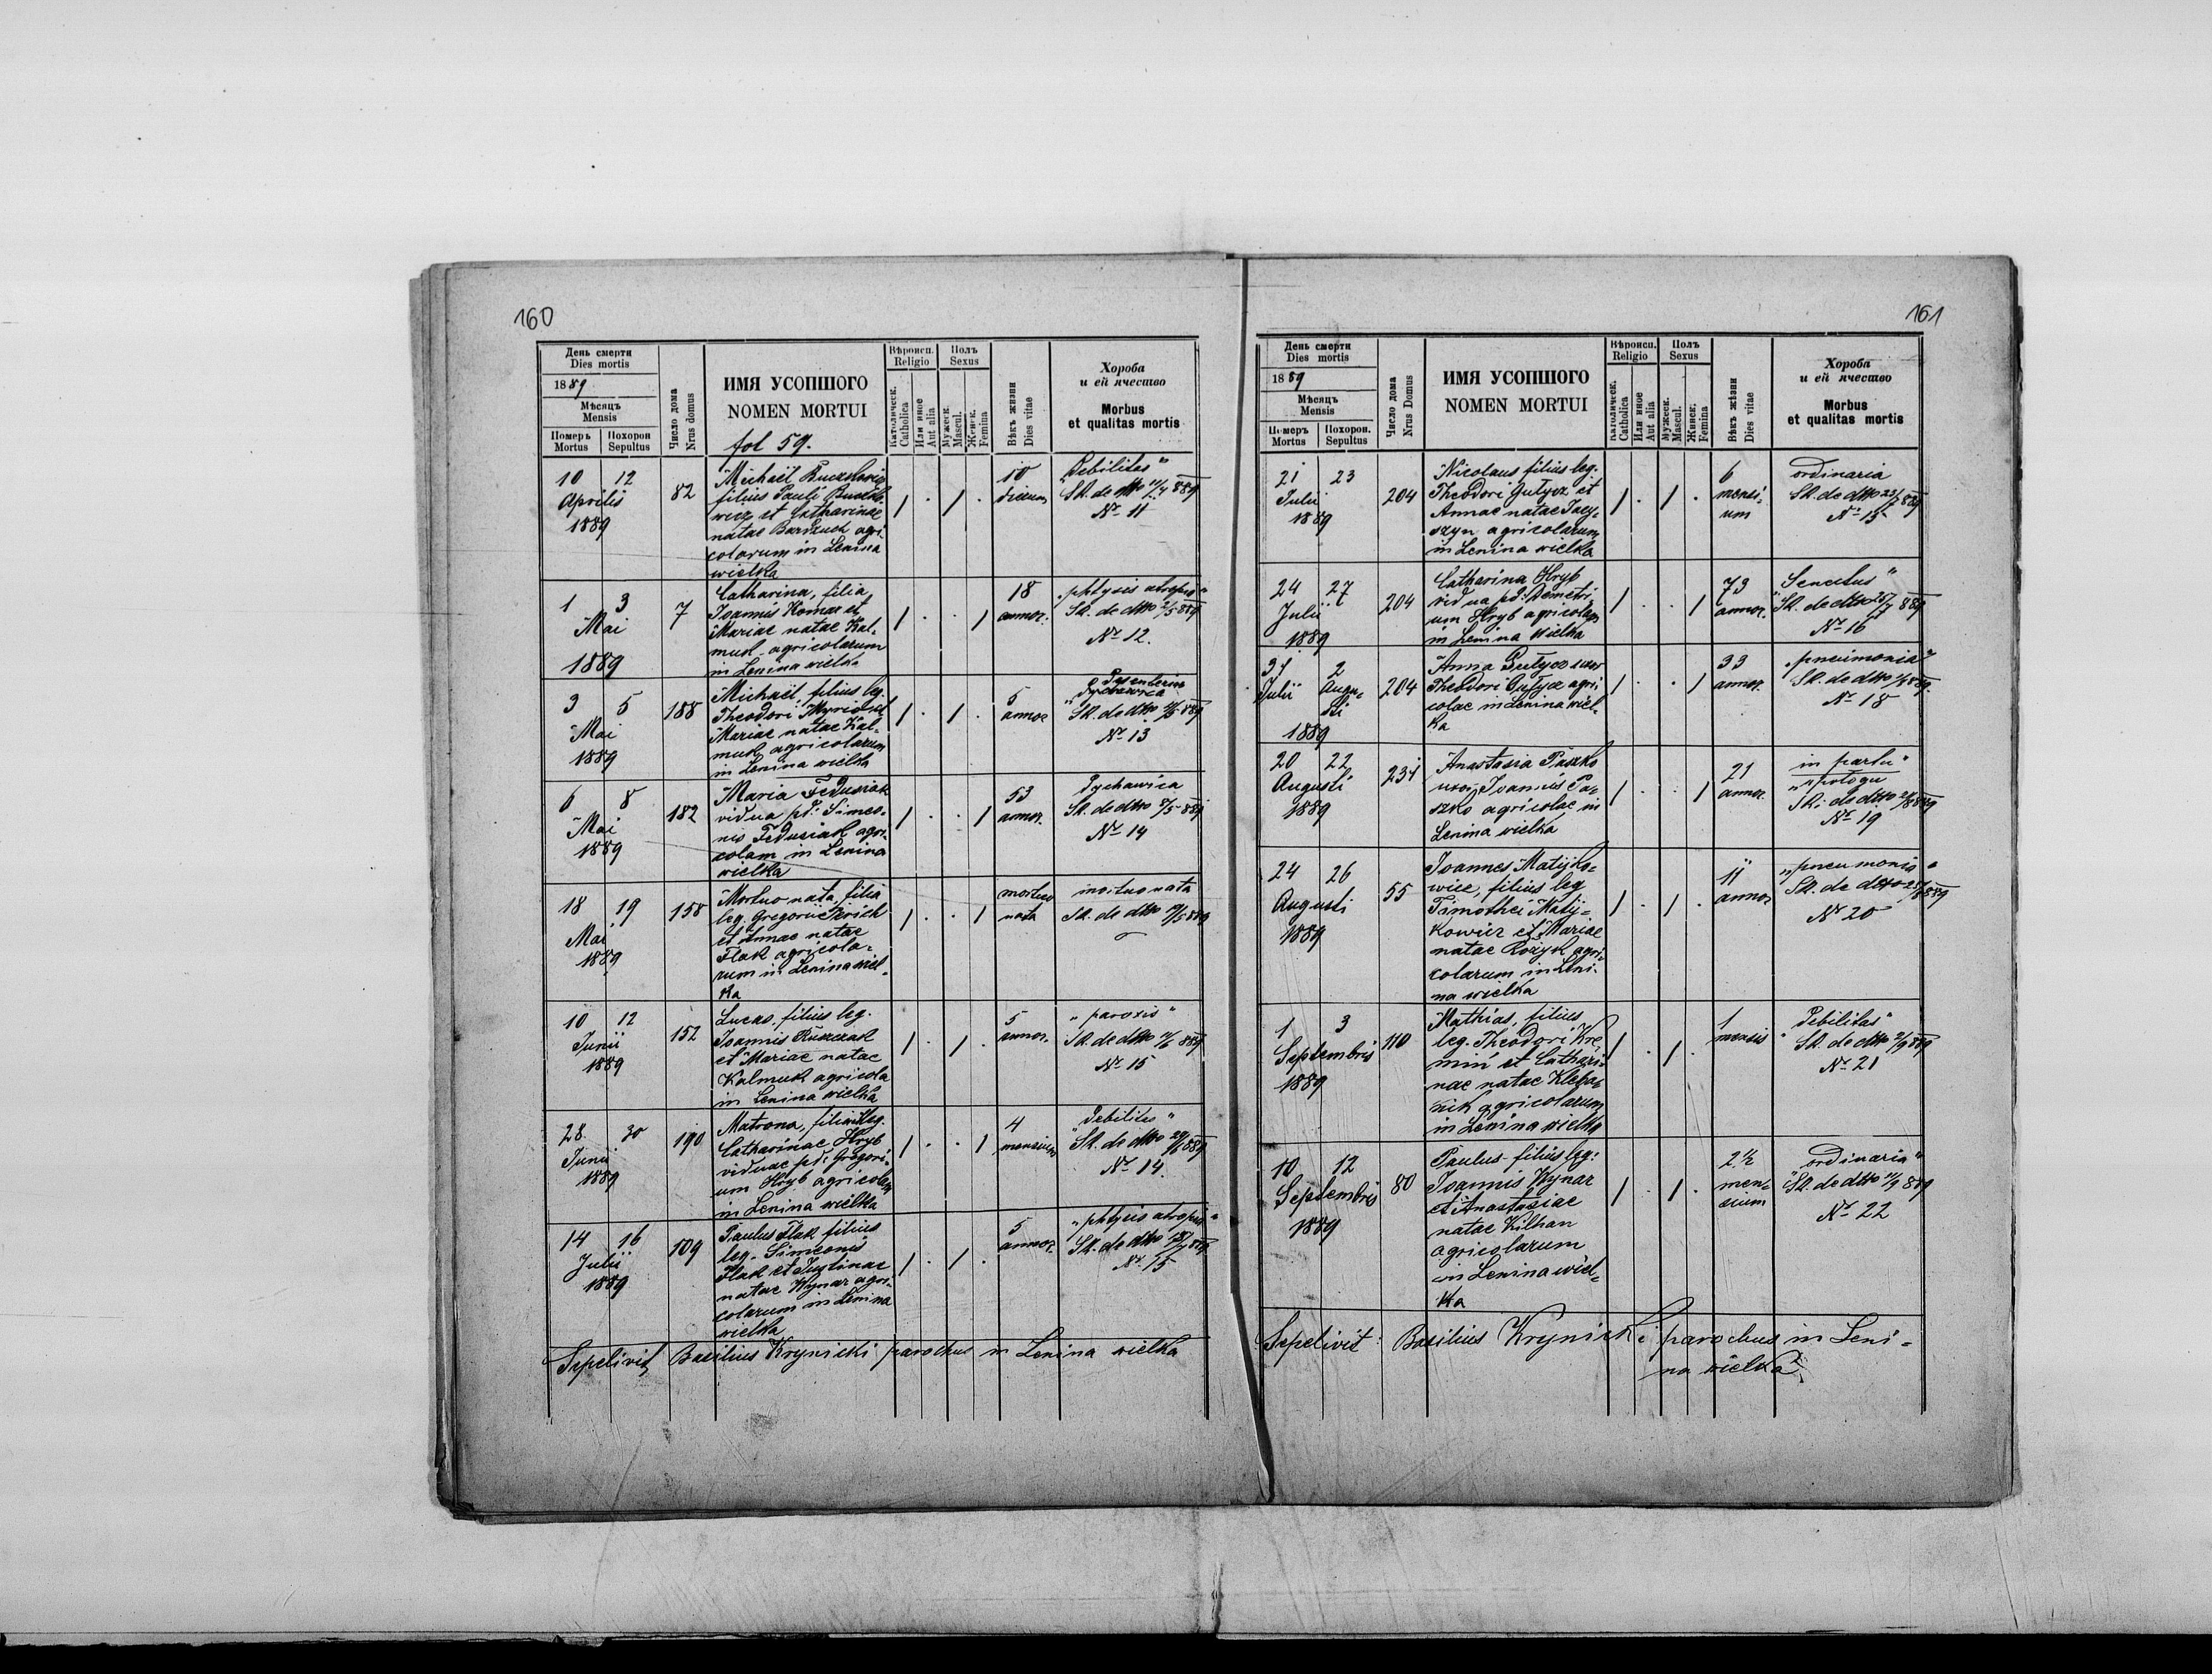 160
День смерти
Dies mortis
1889
Мѣсяцъ
Mensis
Померъ
Mortus
Похорон
Sepultus
Число дома
Nrus domus
ИМЯ УСОПШОГО
NOMEN MORTUI
fol 59.
Вѣроисп.
Religio
Католическ.
Catholica
Или иное
Aut alia
Полъ
Sexus
Мужеск.
Mascul.
Женск.
Femina
Вѣкъ жизни
Dies vitae
Хороба
и ей ячество
Morbus
et qualitas mortis
10 12
Aprilis
1889
82
Michaël
filius Pauli
wicz et Catharinae
natae Barszuch agri-
colarum in Lenina
wielka
/ . / .
10
dierum
Debilitas"
Sk. de dtto 11/4 889
No 11
1 3
Mai
1889
7
Catharina, filia
Joannis Komar et
Mariae natae Kal-
muk agricolarum
in Lenina wielka
/ . . /
18
annor.
"phtysis atropia"
Sk. de dtto 2/5 889
No 12.
3 5
Mai
1889
188
Michaël, filius leg.
Theodori et
Mariae natae Kal-
muk agricolarum
in Lenina wielka
/ . / .
5
annor
dysenteria
Dychawica
Sk. de dtto 889
No 13
6 8
Mai
1889
182
Maria Fedusiak
vidua pd. Simeo-
nis Fedusiak agri-
colam in Lenina
wielka
/ . . /
53
annor.
Dychawica
Sk. de dtto 7/5 889
No 14
18 19
Mai
1889
158
Mortuo nata, filia
leg. Gregorii
et Annae natae
Flak agricola-
rum in Lenina wiel-
ka
/ . . /
mortuo
nata
mortuo nata
Sk. de dtto 19/5 889
10 12
Junii
1889
152
Lucas, filius leg.
Joannis
et Mariae natae
Kalmuk agricola
in Lenina wielka
/ . / .
5
annor.
"paroxis"
Sk. de dtto 11/6 889
No 15
28. 30
Junii
1889
190
Matrona, filia illeg.
Catharinae Hryb
viduae pd: Gregori-
um Hryb agricolam
in Lenina wielka
/ . . /
4
mensium
Debilitas"
Sk. de dtto 29/6 889
No 14
14 16
Julii
1889
109
Paulus Flak filius
leg. Simeonis
Flak et Justinae
natae Wynar agri-
colarum in Lenina
wielka
/ . / .
5
annor.
"phtysis atropia"
Sk. de dtto 889
No 15
Sepelivit Basilius Krynicki parochus in Lenina wielka
161
День смерти
Dies mortis
1889
Мѣсяцъ
Mensis
Померъ
Mortus
Похорон.
Sepultus
Число дома
Nrus Domus
ИМЯ УСОПШОГО
NOMEN MORTUI
Вѣроисп.
Religio
Католическ.
Catholica
Или иное
Aut alia
Полъ
Sexus
Мужеск.
Mascul.
Женск.
Femina
Вѣкъ жѣзни
Dies vitae
Хороба
и ей ячество
Morbus
et qualitas mortis
21 23
Julii
1889
204
Nicolaus filius leg.
Theodori Gułycz et
Annae natae Jacy-
szyn agricolarum
in Lenina wielka
/ . / .
6
mensi-
um
ordinaria
Sk. de dtto 889
No 15
24 27
Julii
1889
204
Catharina Hryb
vidua pd: Demetri-
um Hryb agricolam
in Lenina wielka
/ . . /
73
annor.
Senectus"
"Sk. de dtto 25/7 889
No 16
31 2
Julii Augu-
sti
1889
204
Anna Gułycz uxor
Theodori Gułycz agri-
colae in Lenina wiel-
ka
/ . . /
33
annor.
"pneumonia"
Sk. de dtto 1/8 889.
No 18
20 22
Augusti
1889
231
Anastasia Paszko
uxor Joannis Pa-
szko agricolae in
Lenina wielka
/ . . /
21
annor.
in partu"
"połogu
Sk. de dtto 889
No 19
24 26
Augusti
1889
55
Joannes Matijko-
wicz, filius leg
Timothei Matij-
kowicz et Mariae
natae Rożyk agri-
colarum in Leni-
na wielka
/ . / .
11
annor
"pneumonia"
Sk. de dtto 25/8 889
No 20
1 3
Septembris
1889
110
Mathias, filius
leg. Theodori Kre-
min et Cathari-
nae natae
agricolarum
in Lenina wielka
/ . / .
1
mensis
Debilitas"
" Sk. de dtto 2/9 889
No 21
10 12
Septembris
1889
80
Paulus filius leg:
Joannis Wynar
et Anastasiae
natae Kilhan
agricolarum
in Lenina wiel-
ka
/ . / .
2½
men-
sium
ordinaria"
"Sk. de dtto 11/9 889
No 22
Sepelivit: Basilius Krynicki parochus in Leni-
na wielka